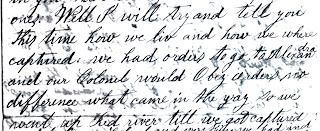 ons. Well I will try and tell you
this time how we liv and how we where
captured. we had orders to go to Alexandra
and our Colonel would Obey orders no
difference what came in the way so we
went up Red river till we got captured